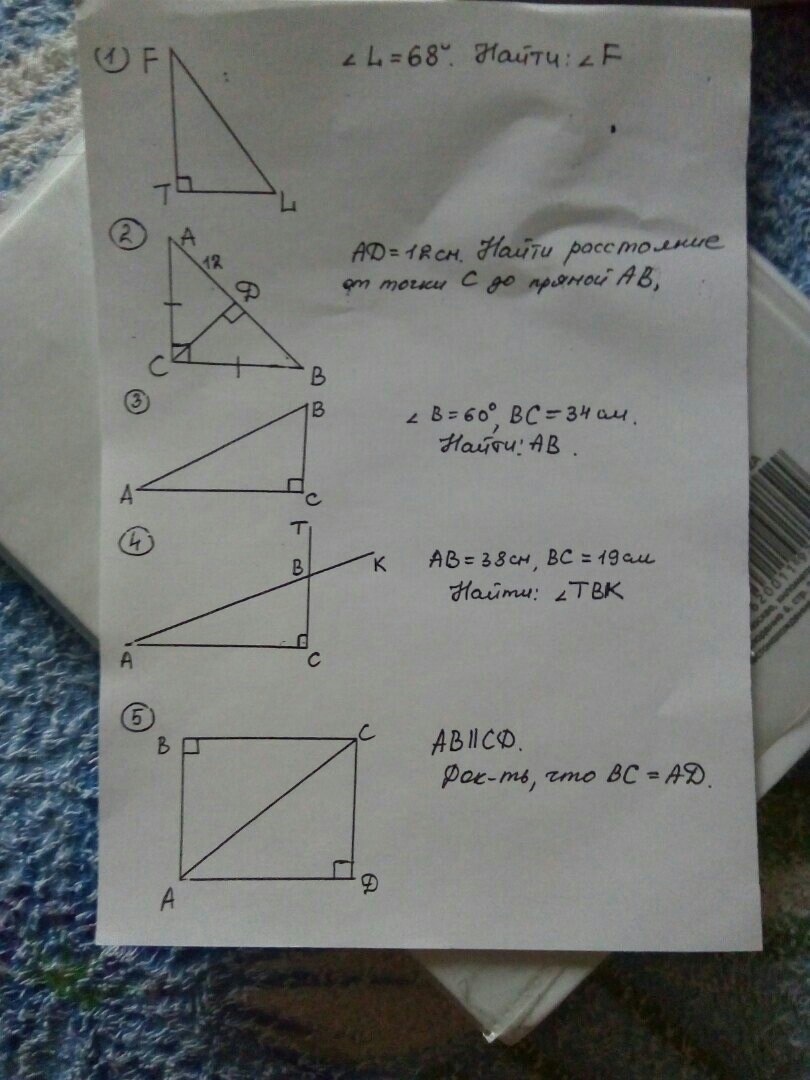 ① F ∠L=68°. Найти: ∠F
T L
② A 12 D AD=12см. Найти расстояние
от точки C до прямой AB,
C B
③ B ∠B=60°, BC=34см.
Найти: AB.
A C
④ T B K AB=38см, BC=19см
Найти: ∠TBK
A C
⑤ B C AB||CD.
Док-ть, что BC=AD.
A D